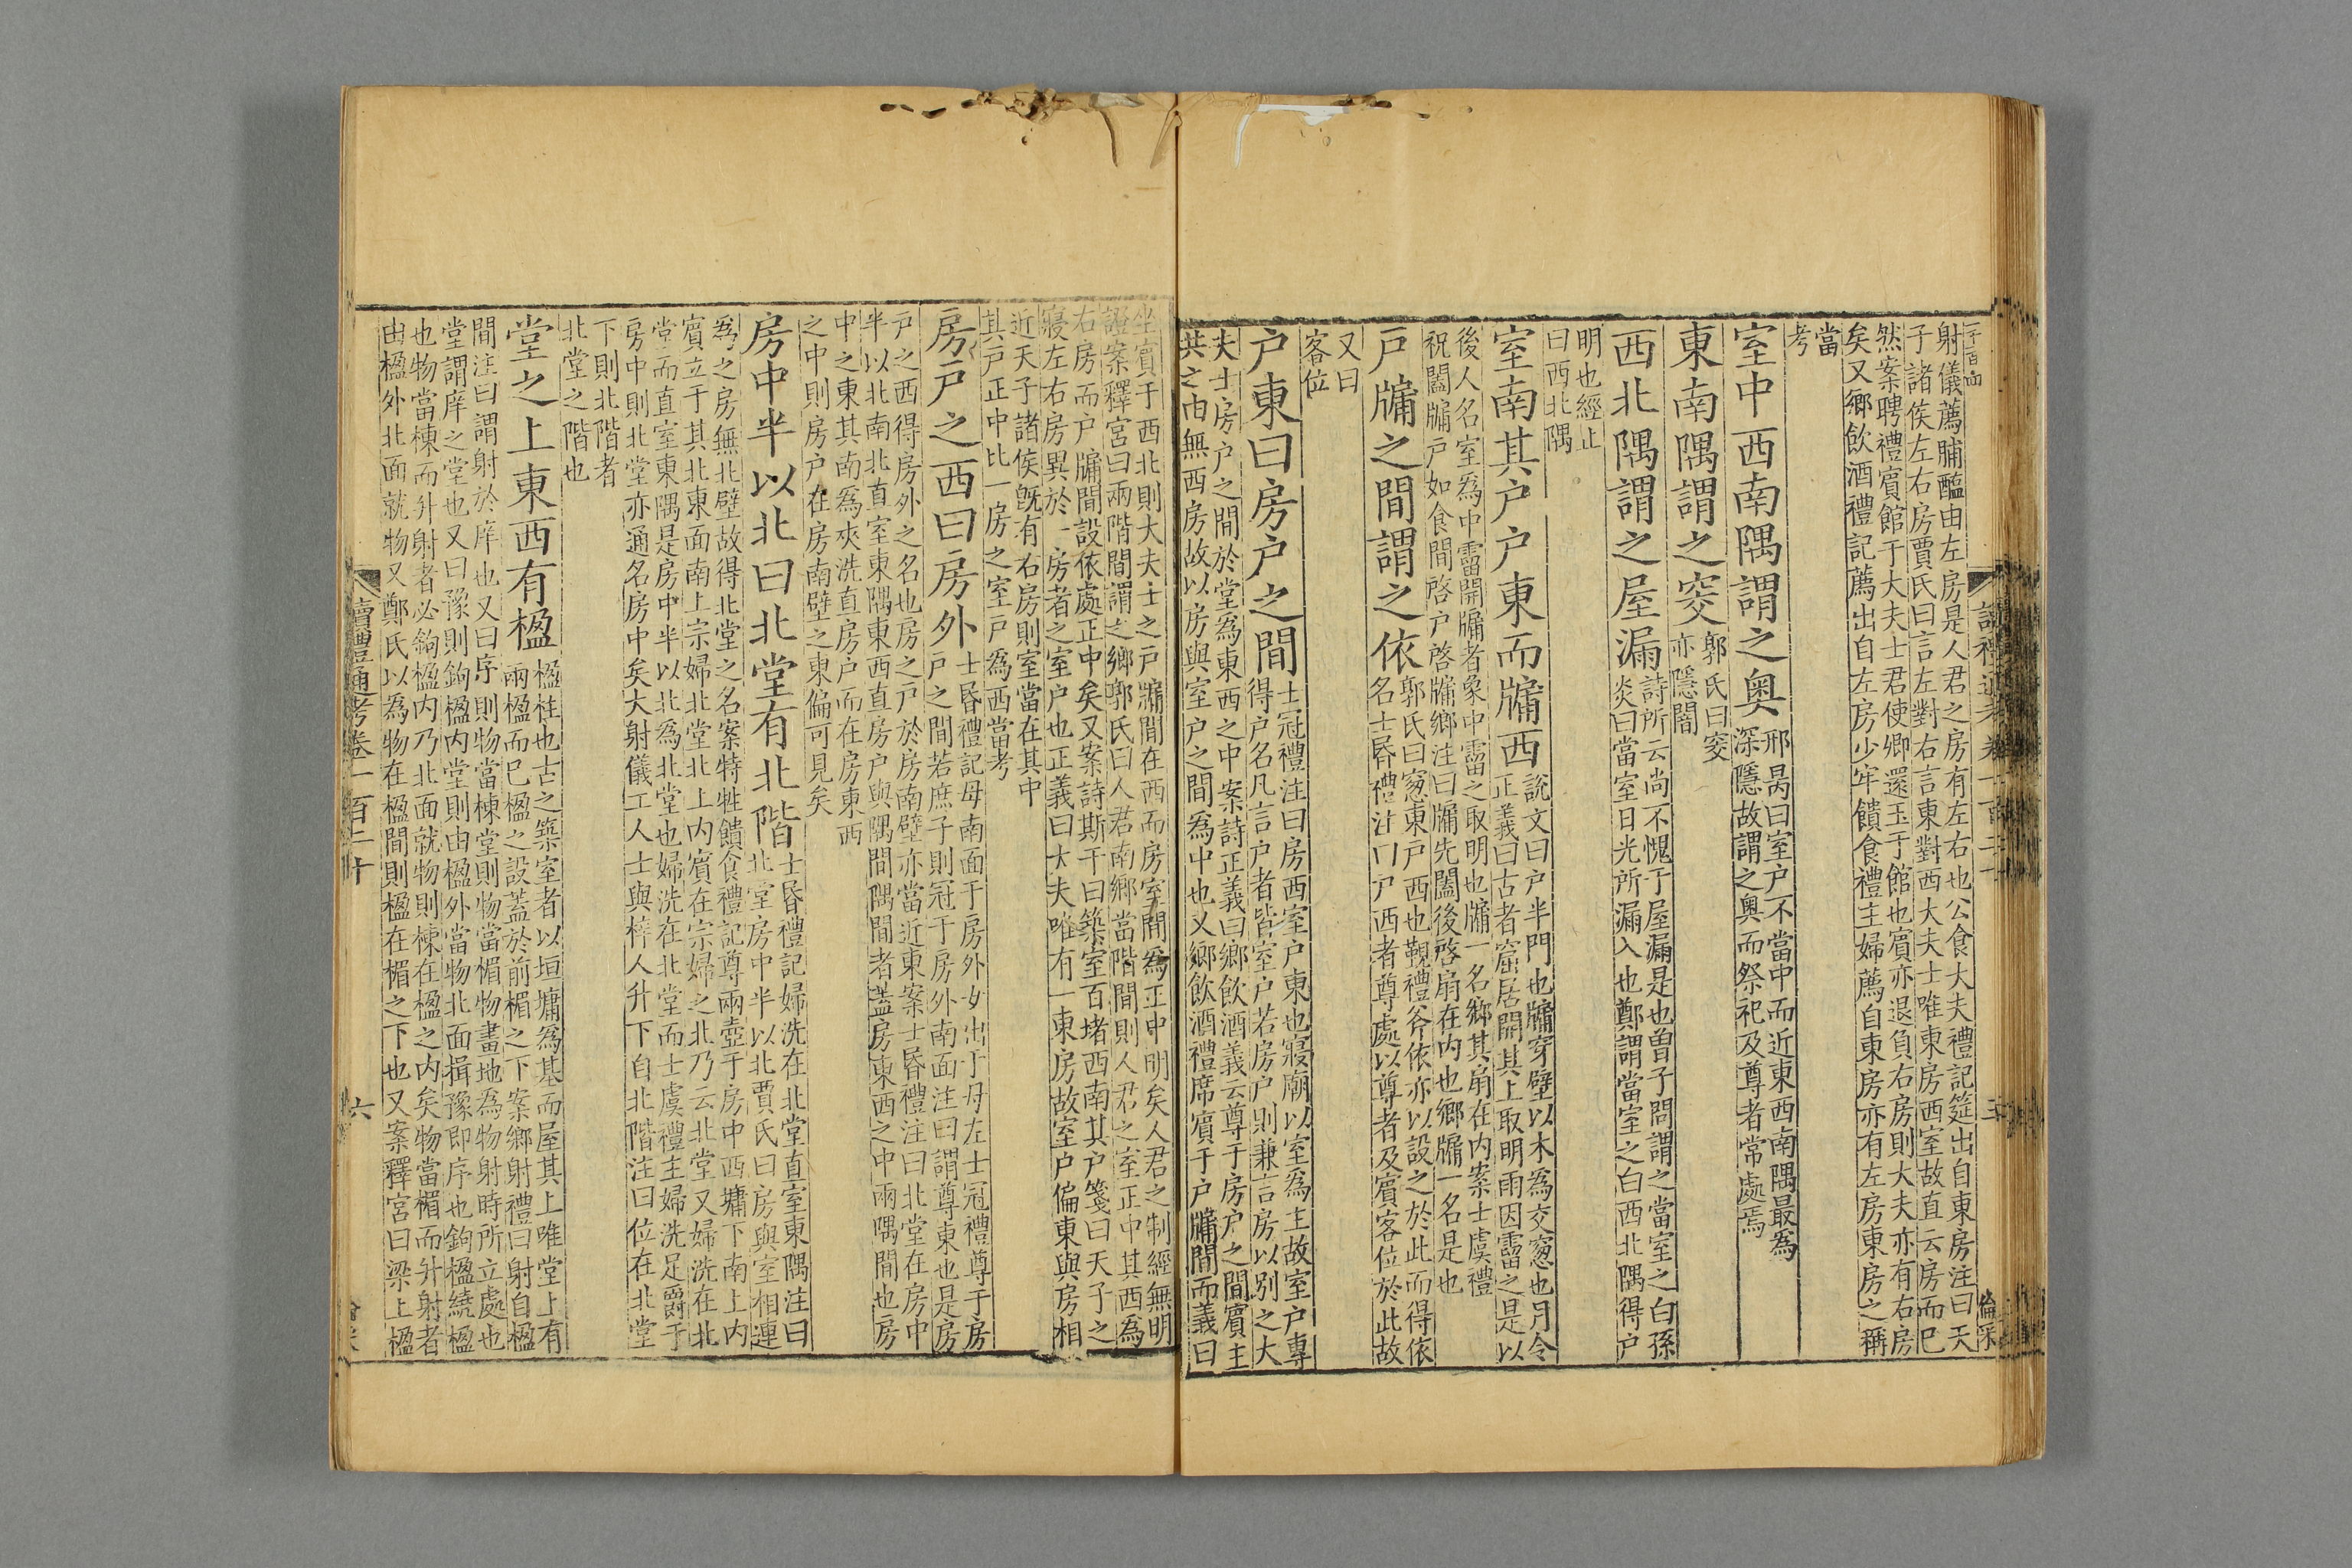 千百四
讀禮通考卷一百二十
倫采
射儀薦脯醢由左房是人君之房有左右也公食大夫禮記筵出自東房注曰天
子諸侯左右房賈氏曰言左對右言東對西大夫士唯東房西室故直云房而已
然案聘禮賓館于大夫士君使卿還玉于館也賓亦退負右房則大夫亦有右房
矣又鄉飲酒禮記薦出自左房少牢饋食禮主婦薦自東房亦有左房東房之稱
當
考
室中西南隅謂之奥
邢昺曰室户不當中而近東西南隅最爲
深隱故謂之奥而祭祀及尊者常處焉
東南隅謂之窔
郭氏曰窔
亦隱闇
西北隅謂之屋漏
詩所云尚不愧于屋漏是也曾子問謂之當室之白孫
炎曰當室日光所漏入也鄭謂當室之白西北隅得户
明也經止
曰西北隅
室南其户户東而牖西
說文曰户半門也牖穿壁以木爲交窓也月令
正義曰古者窟居開其上取明雨因霤之是以
後人名室爲中霤開牖者象中霤之取明也牖一名鄉其扇在内案士虞禮
祝闔牖户如食間啓户啓牖鄉注曰牖先闔後啓扇在内也鄉牖一名是也
戸牖之間謂之依
郭氏曰窓東戸西也覲禮斧依亦以設之於此而得依
名士昏禮注曰户西者尊處以尊者及賓客位於此故
又曰
客位
户東曰房户之間
士冠禮注曰房西室户東也寢廟以室爲主故室户專
得户名凡言户者皆室户若房户則兼言房以别之大
夫士房户之間於堂爲東西之中案詩正義曰鄉飲酒義云尊于房户之間賓主
共之由無西房故以房與室户之間爲中也又鄉飲酒禮席賓于户牖間而義曰
坐賓于西北則大夫士之戸牖間在西而房室間爲正中明矣人君之制經無明
證案釋宮曰兩階間謂之鄉郭氏曰人君南鄉當階間則人君之室正中其西爲
右房而户牖間設依處正中矣又案詩斯干曰築室百堵西南其户箋曰天子之
寢左右房異於一房者之室户也正義曰大夫唯有一東房故室户偏東與房相
近天子諸侯旣有右房則室當在其中
其戸正中比一房之室戸爲西當考
房戸之西曰房外
士昏禮記母南面于房外女出于母左士冠禮尊于房
戸之間若庶子則冠于房外南面注曰謂尊東也是房
戸之西得房外之名也房之戸於房南壁亦當近東案士昏禮注曰北堂在房中
半以北南北直室東隅東西直房户與隅間隅間者蓋房東西之中兩隅間也房
中之東其南爲夾洗直房戸而在房東西
之中則房户在房南壁之東偏可見矣
房中半以北曰北堂有北階
士昏禮記婦洗在北堂直室東隅注曰
北堂房中半以北賈氏曰房與室相連
爲之房無北壁故得北堂之名案特牲饋食禮記尊兩壺于房中西墉下南上内
賓立于其北東面南上宗婦北堂北上内賓在宗婦之北乃云北堂又婦洗在北
堂而直室東隅是房中半以北爲北堂也婦洗在北堂而士虞禮主婦洗足爵于
房中則北堂亦通名房中矣大射儀工人士與梓人升下自北階注曰位在北堂
下則北階者
北堂之階也
堂之上東西有楹
楹柱也古之築室者以垣墉爲基而屋其上唯堂上有
兩楹而已楹之設蓋於前楣之下案鄉射禮曰射自楹
間注曰謂射於庠也又曰序則物當棟堂則物當楣物畫地爲物射時所立處也
堂謂庠之堂也又曰豫則鉤楹内堂則由楹外當物北面揖豫即序也鉤楹繞楹
也物當棟而升射者必鉤楹内乃北面就物則棟在楹之内矣物當楣而升射者
由楹外北面就物又鄭氏以爲物在楹間則楹在楣之下也又案釋宮曰梁上楹
讀禮通考卷一百二十
六